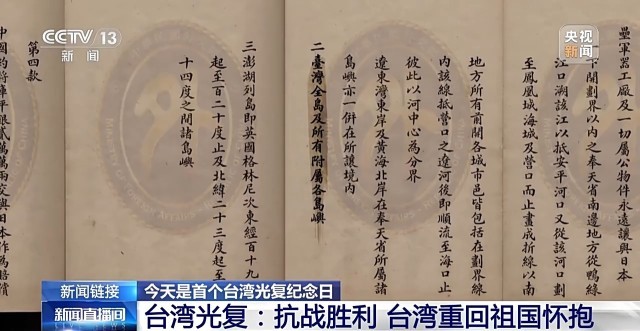 CCTV 13
新闻
央视
新闻
壘軍器工廠及一切屬公物件永遠讓與日本
下開劃界以内之奉天省南邊地方從鴨綠
江口溯該江以抵安平河口又從該河口劃
至鳳凰城海城及營口而止畫成折線以南
地方所有前開各城市邑皆包括在劃界線
内該線抵營口之遼河後即順流至海口止
彼此以河中心為分界
遼東灣東岸及黃海北岸在奉天省所屬諸
島嶼亦一併在所讓境内
二臺灣全島及所有附屬各島嶼
三澎湖列島即英國格林尼次東經百十九
起至百二十度止及北緯二十三度起至
十四度之間諸島嶼
第四款
中國約將庫平銀貳萬萬兩交與日本作為賠償
新闻链接
今天是首个台湾光复纪念日
新闻直播间
台湾光复：抗战胜利 台湾重回祖国怀抱